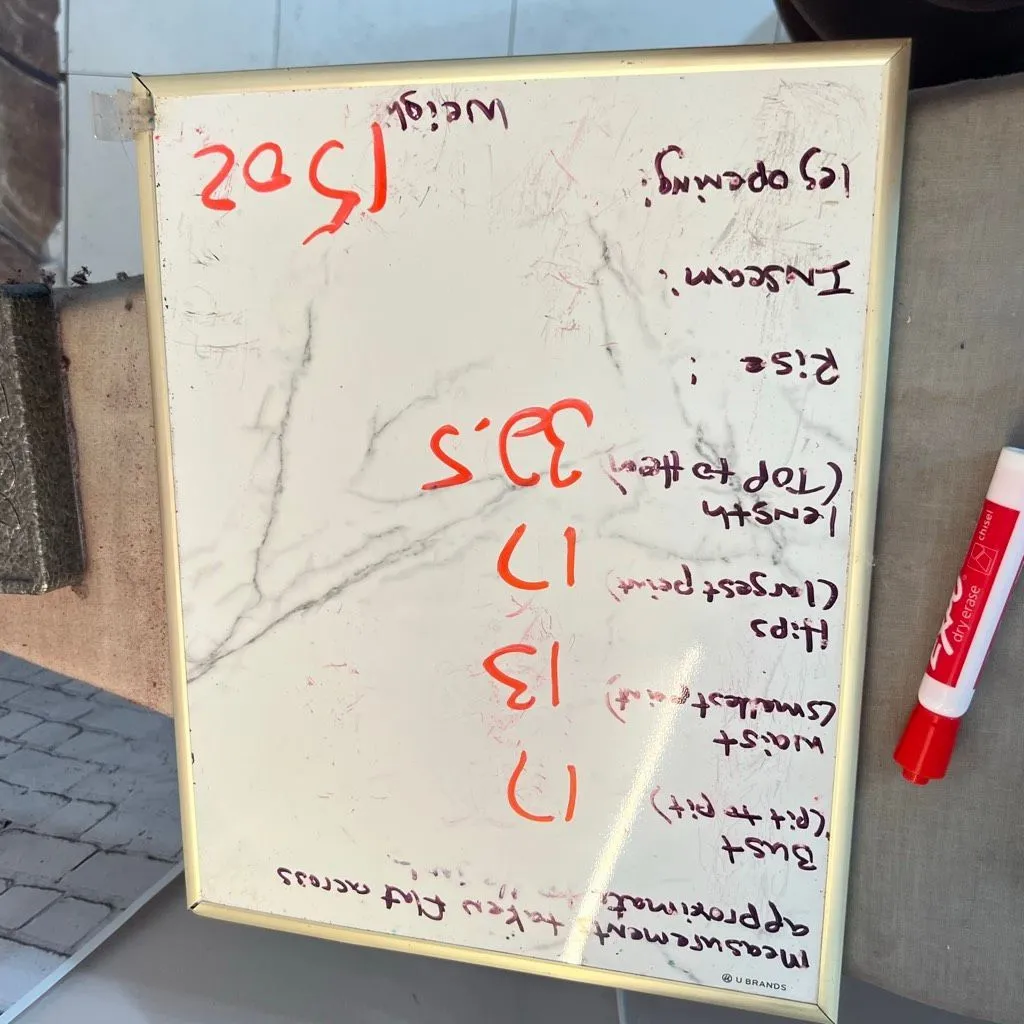 U BRANDS
Measurements taken flat across
approximate
Bust
(pit to pit) 17
waist
(smallest point) 13
Hips
(largest point) 17
length
(TOP to Hem) 30.5
Rise :
Inseam:
leg opening:
Weigh
15 oz
EXPO
dry erase
chisel